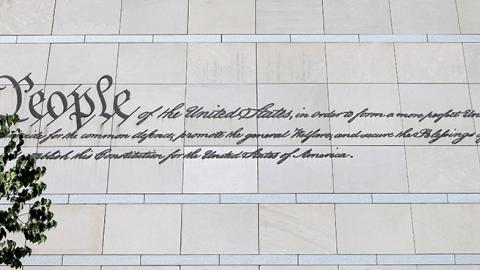 People of the United States, in order to form a more perfect Un
for the common defence, promote the general Welfare, and secure the Blessings
this Constitution for the United States of America.